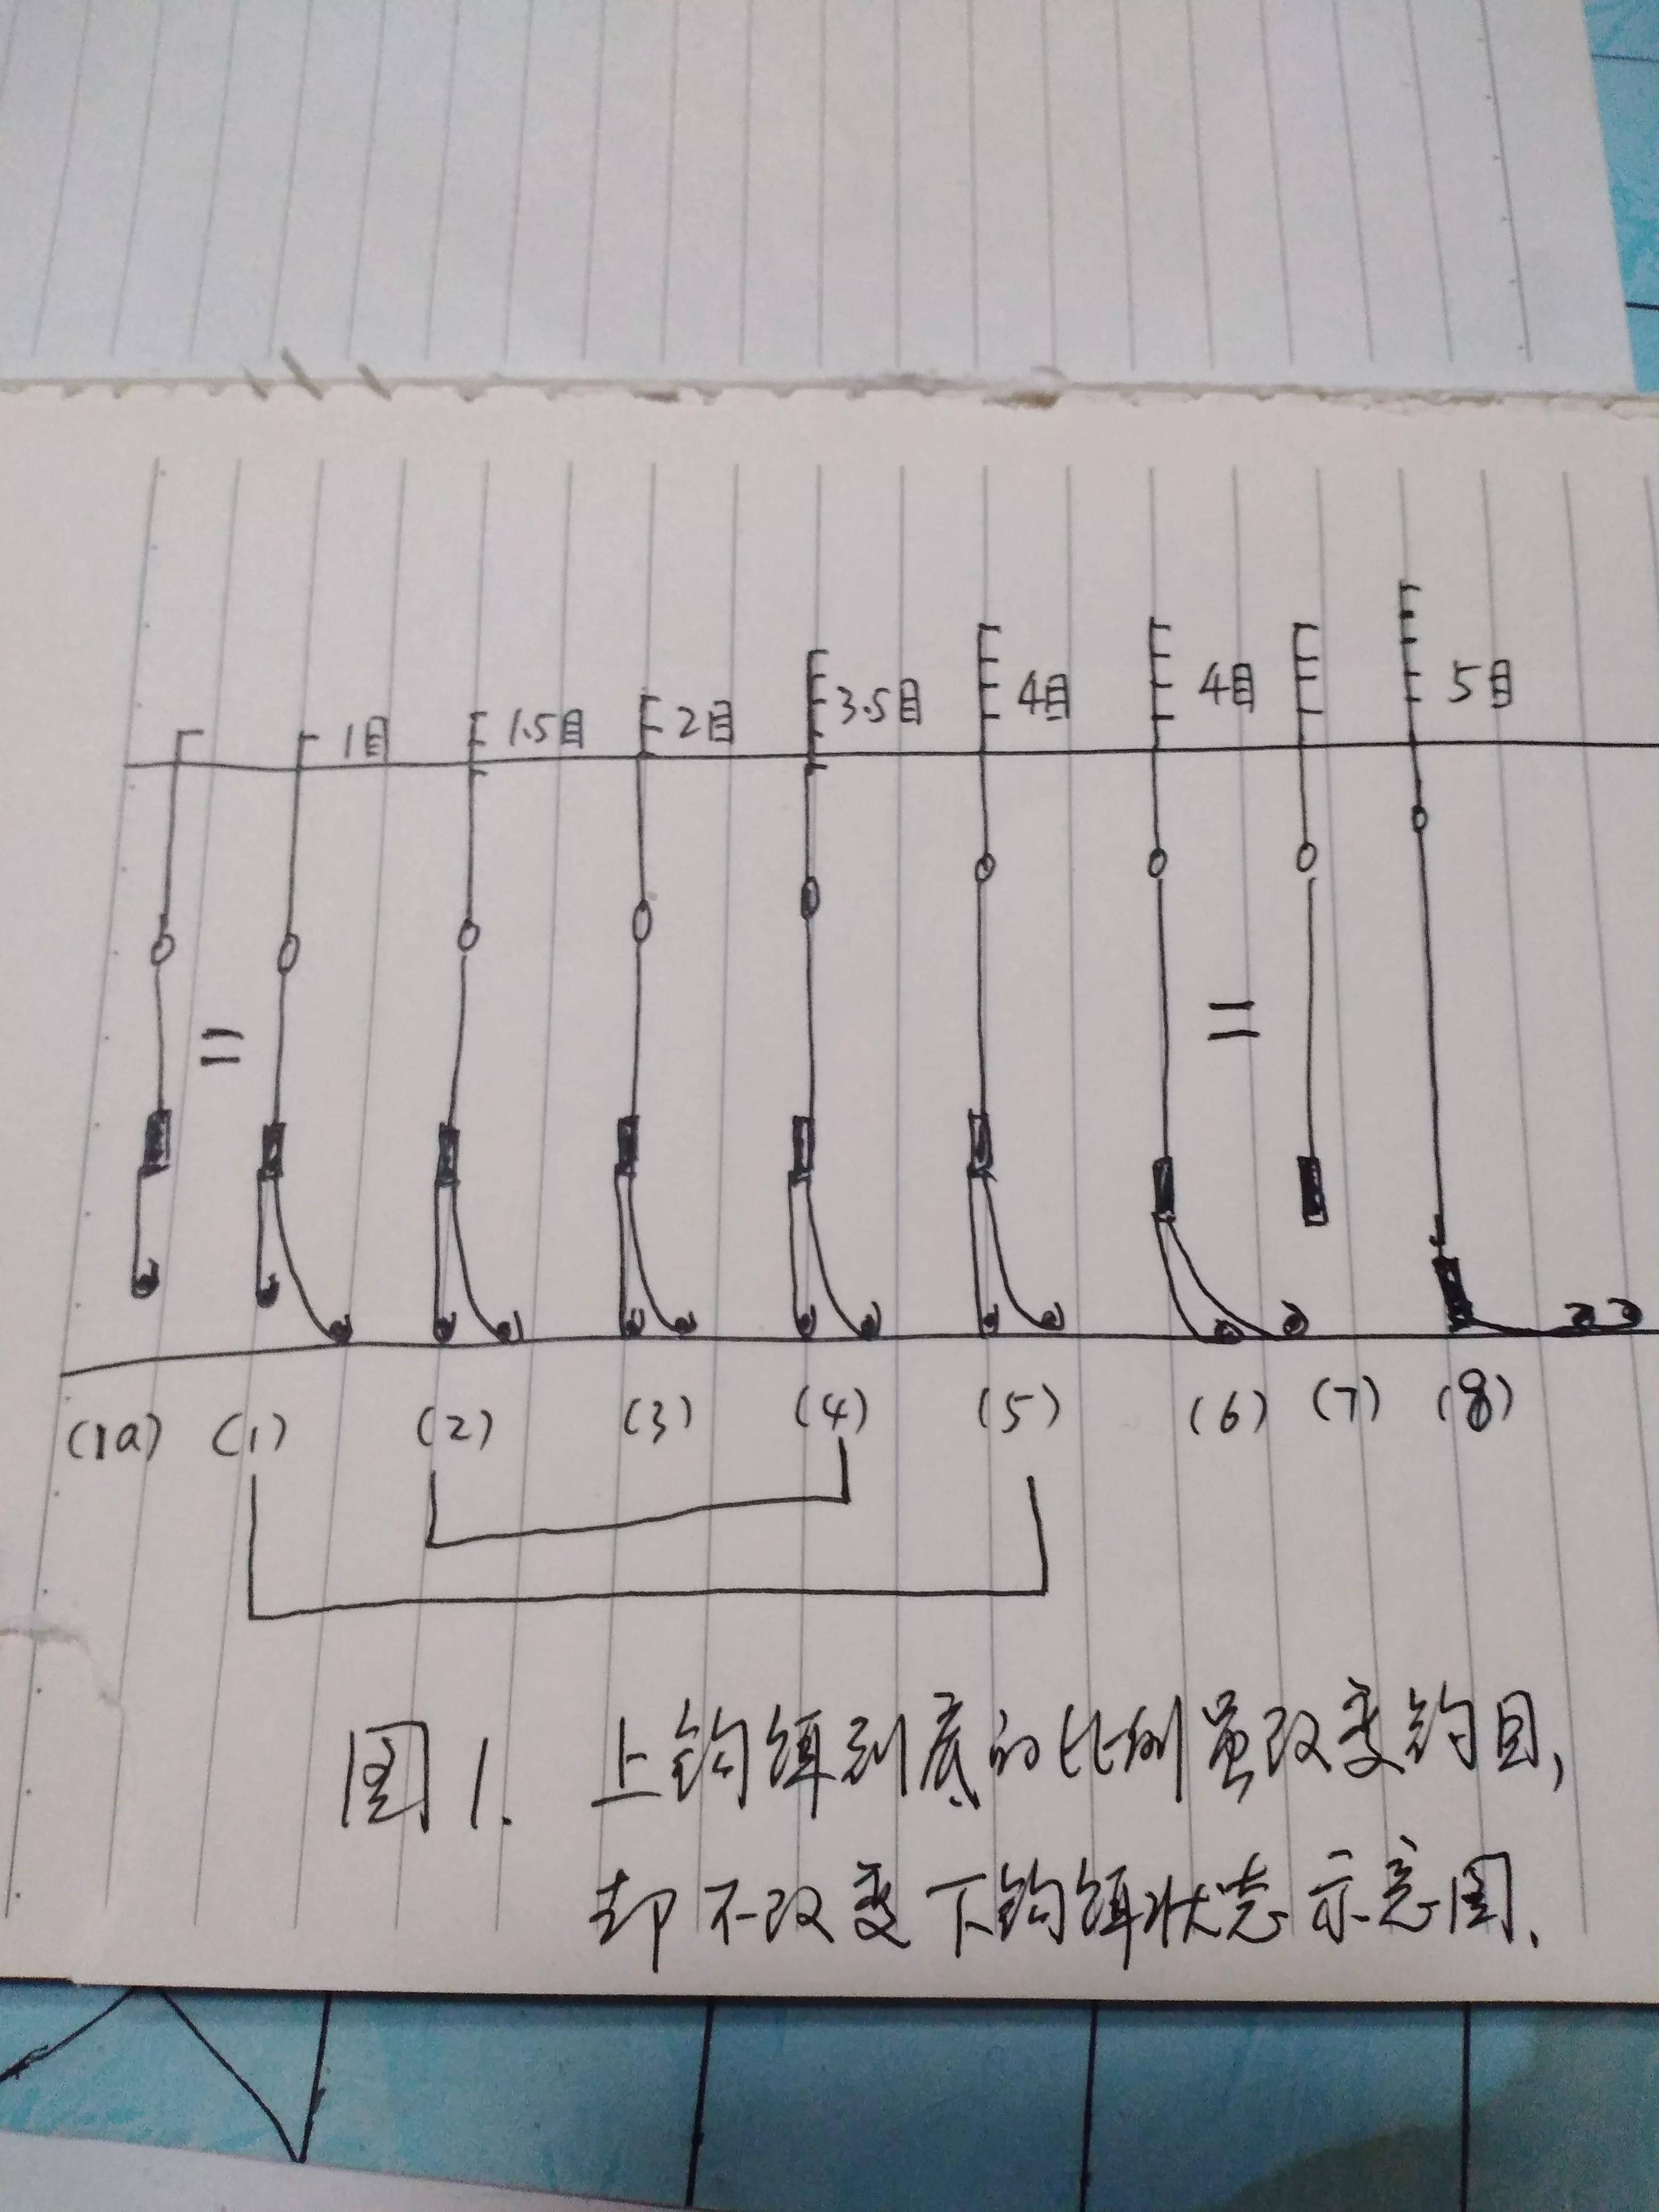 1目 1.5目 2目 3.5目 4目 4目 5目
= =
(1a) (1) (2) (3) (4) (5) (6) (7) (8)
图1. 上钩饵到底的比例虽改变钓目,
却不改变下钩饵状态示意图.